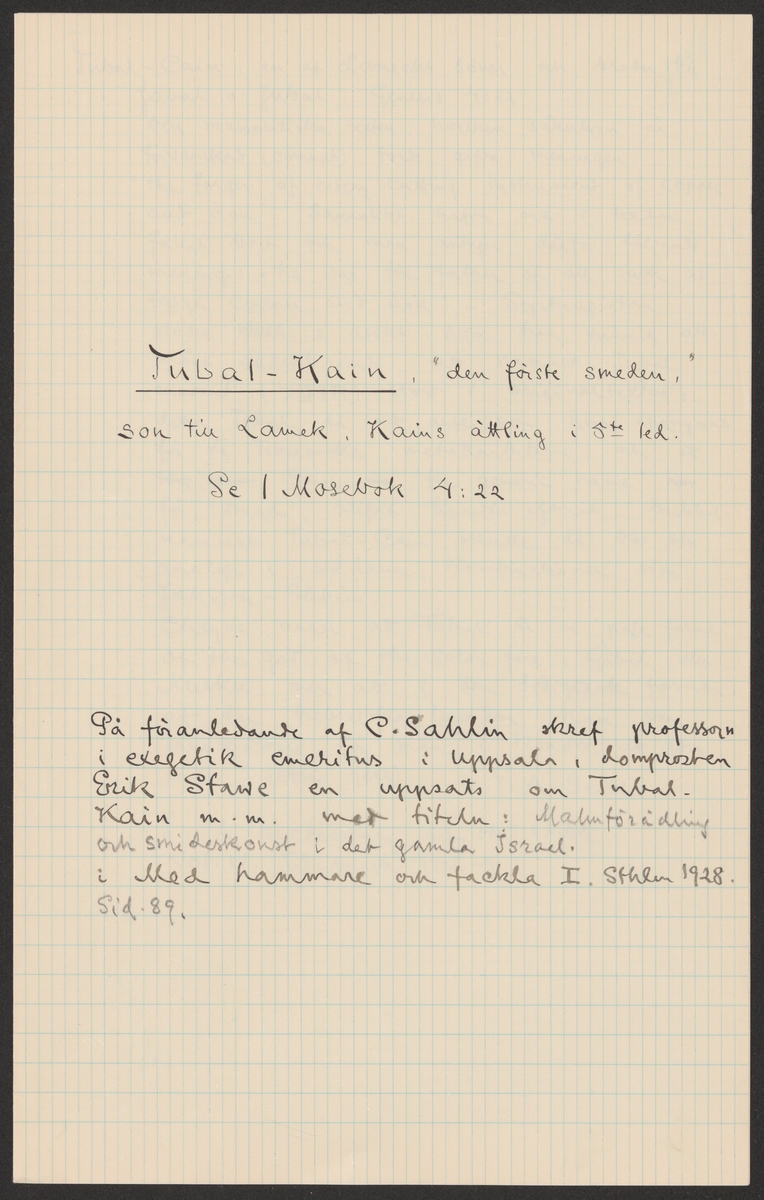 Tubal-Kain, "den förste smeden,"
son till Lamek, Kains ättling i 5te led.
Se I Mosebok 4:22
På föranledande af C. Sahlin skref professorn
i exegetik emeritus i Uppsala, domprosten
Erik Stave en uppsats om Tubal-
Kain m.m. med titeln: Malmförädling
och smideskonst i det gamla Israel.
i Med hammare och fackla I. Sthlm 1928.
Sid. 89.